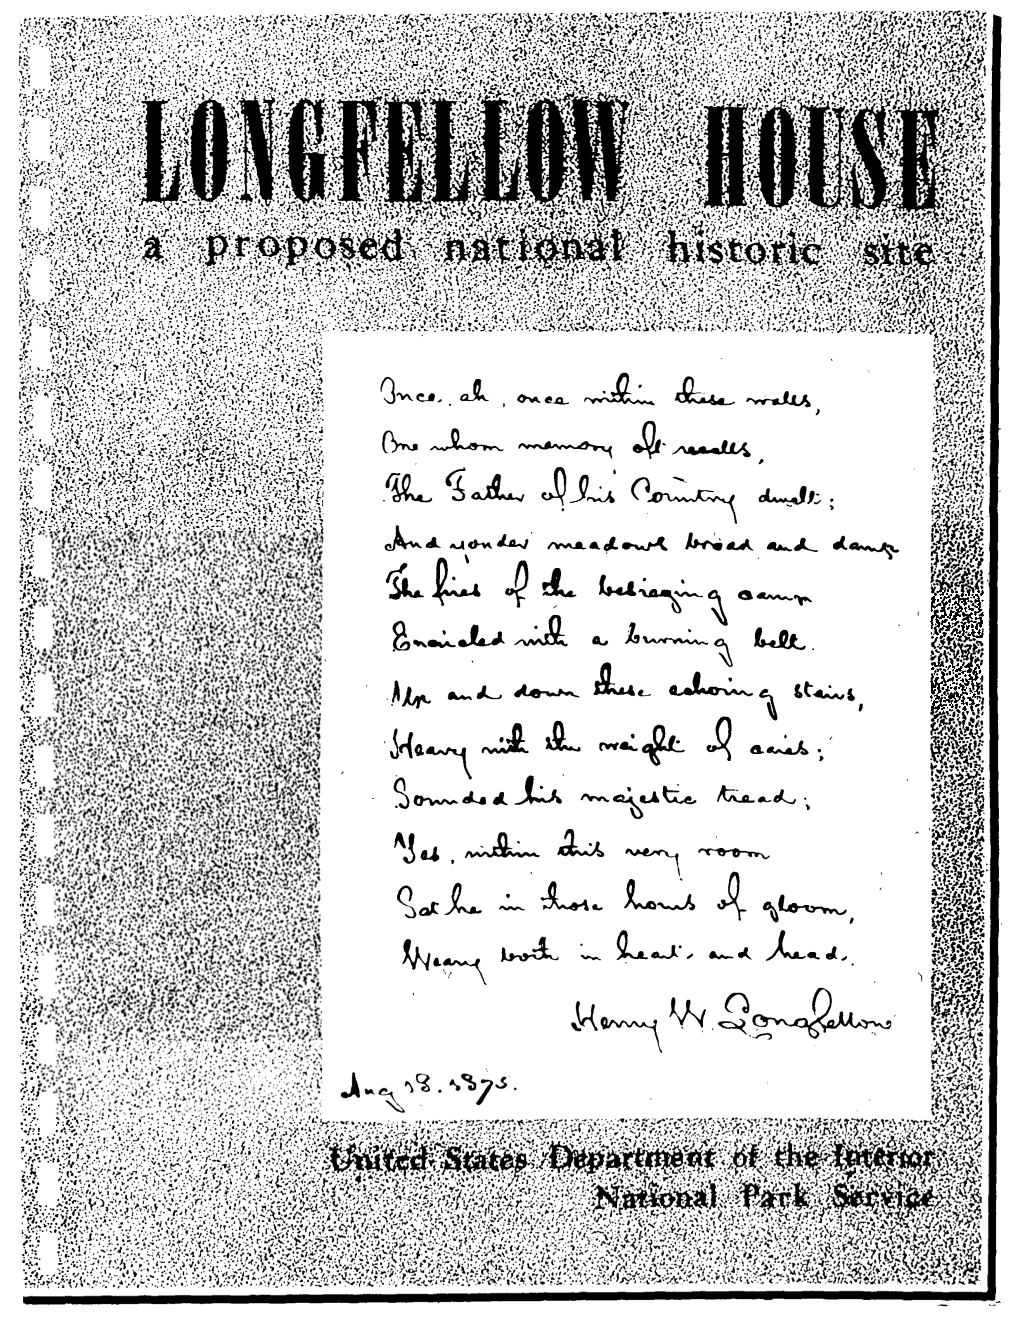 LONGFELLOW HOUSE
a proposed national historic site
Once, ah, once within these walls,
One whom memory oft recalls,
The Father of his Country dwelt;
And yonder meadows broad and damp
The fires of the besieging camp
Encircled with a burning belt.
Up and down these echoing stairs,
Heavy with the weight of cares;
Sounded his majestic tread;
Yes, within this very room
Sat he in those hours of gloom,
Weary both in heart, and head.
Henry W. Longfellow
Aug 18. 1875.
United States Department of the Interior
National Park Service